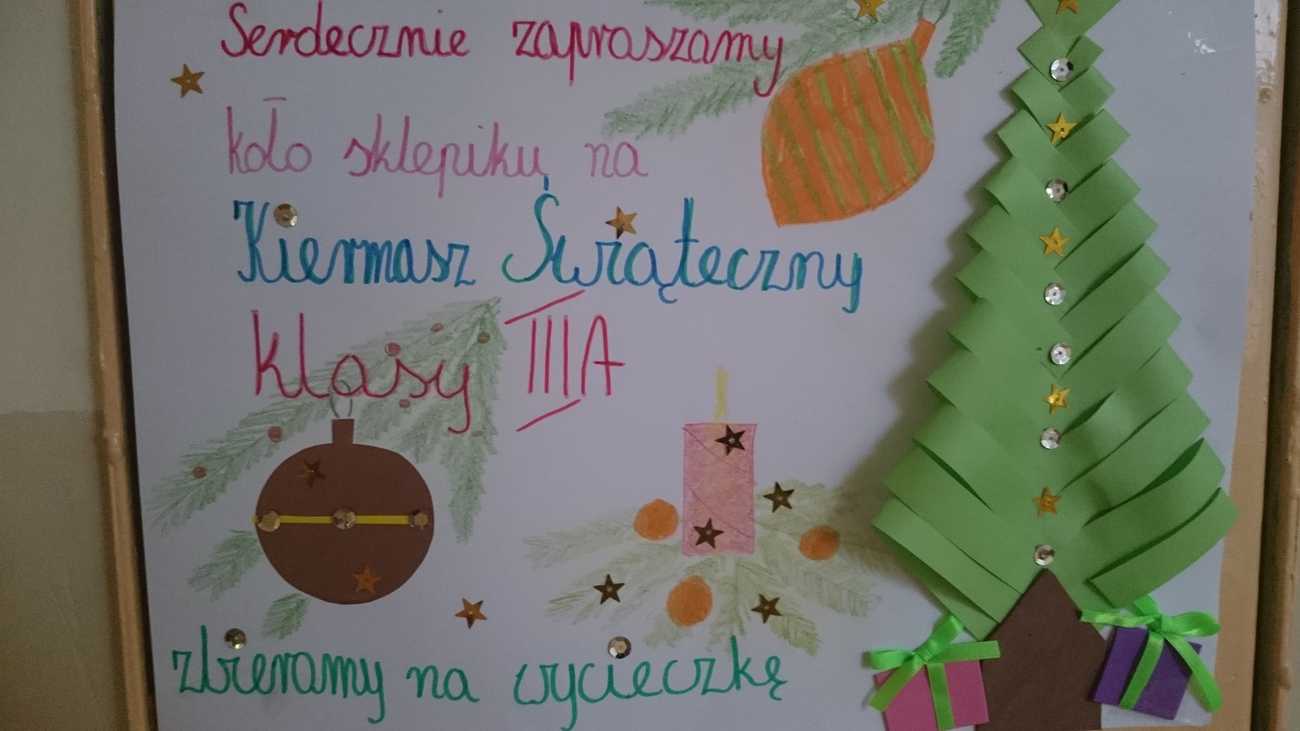 Serdecznie zapraszamy
koło sklepiku na
Kiermasz Świąteczny
klasy IIIA
zbieramy na wycieczkę